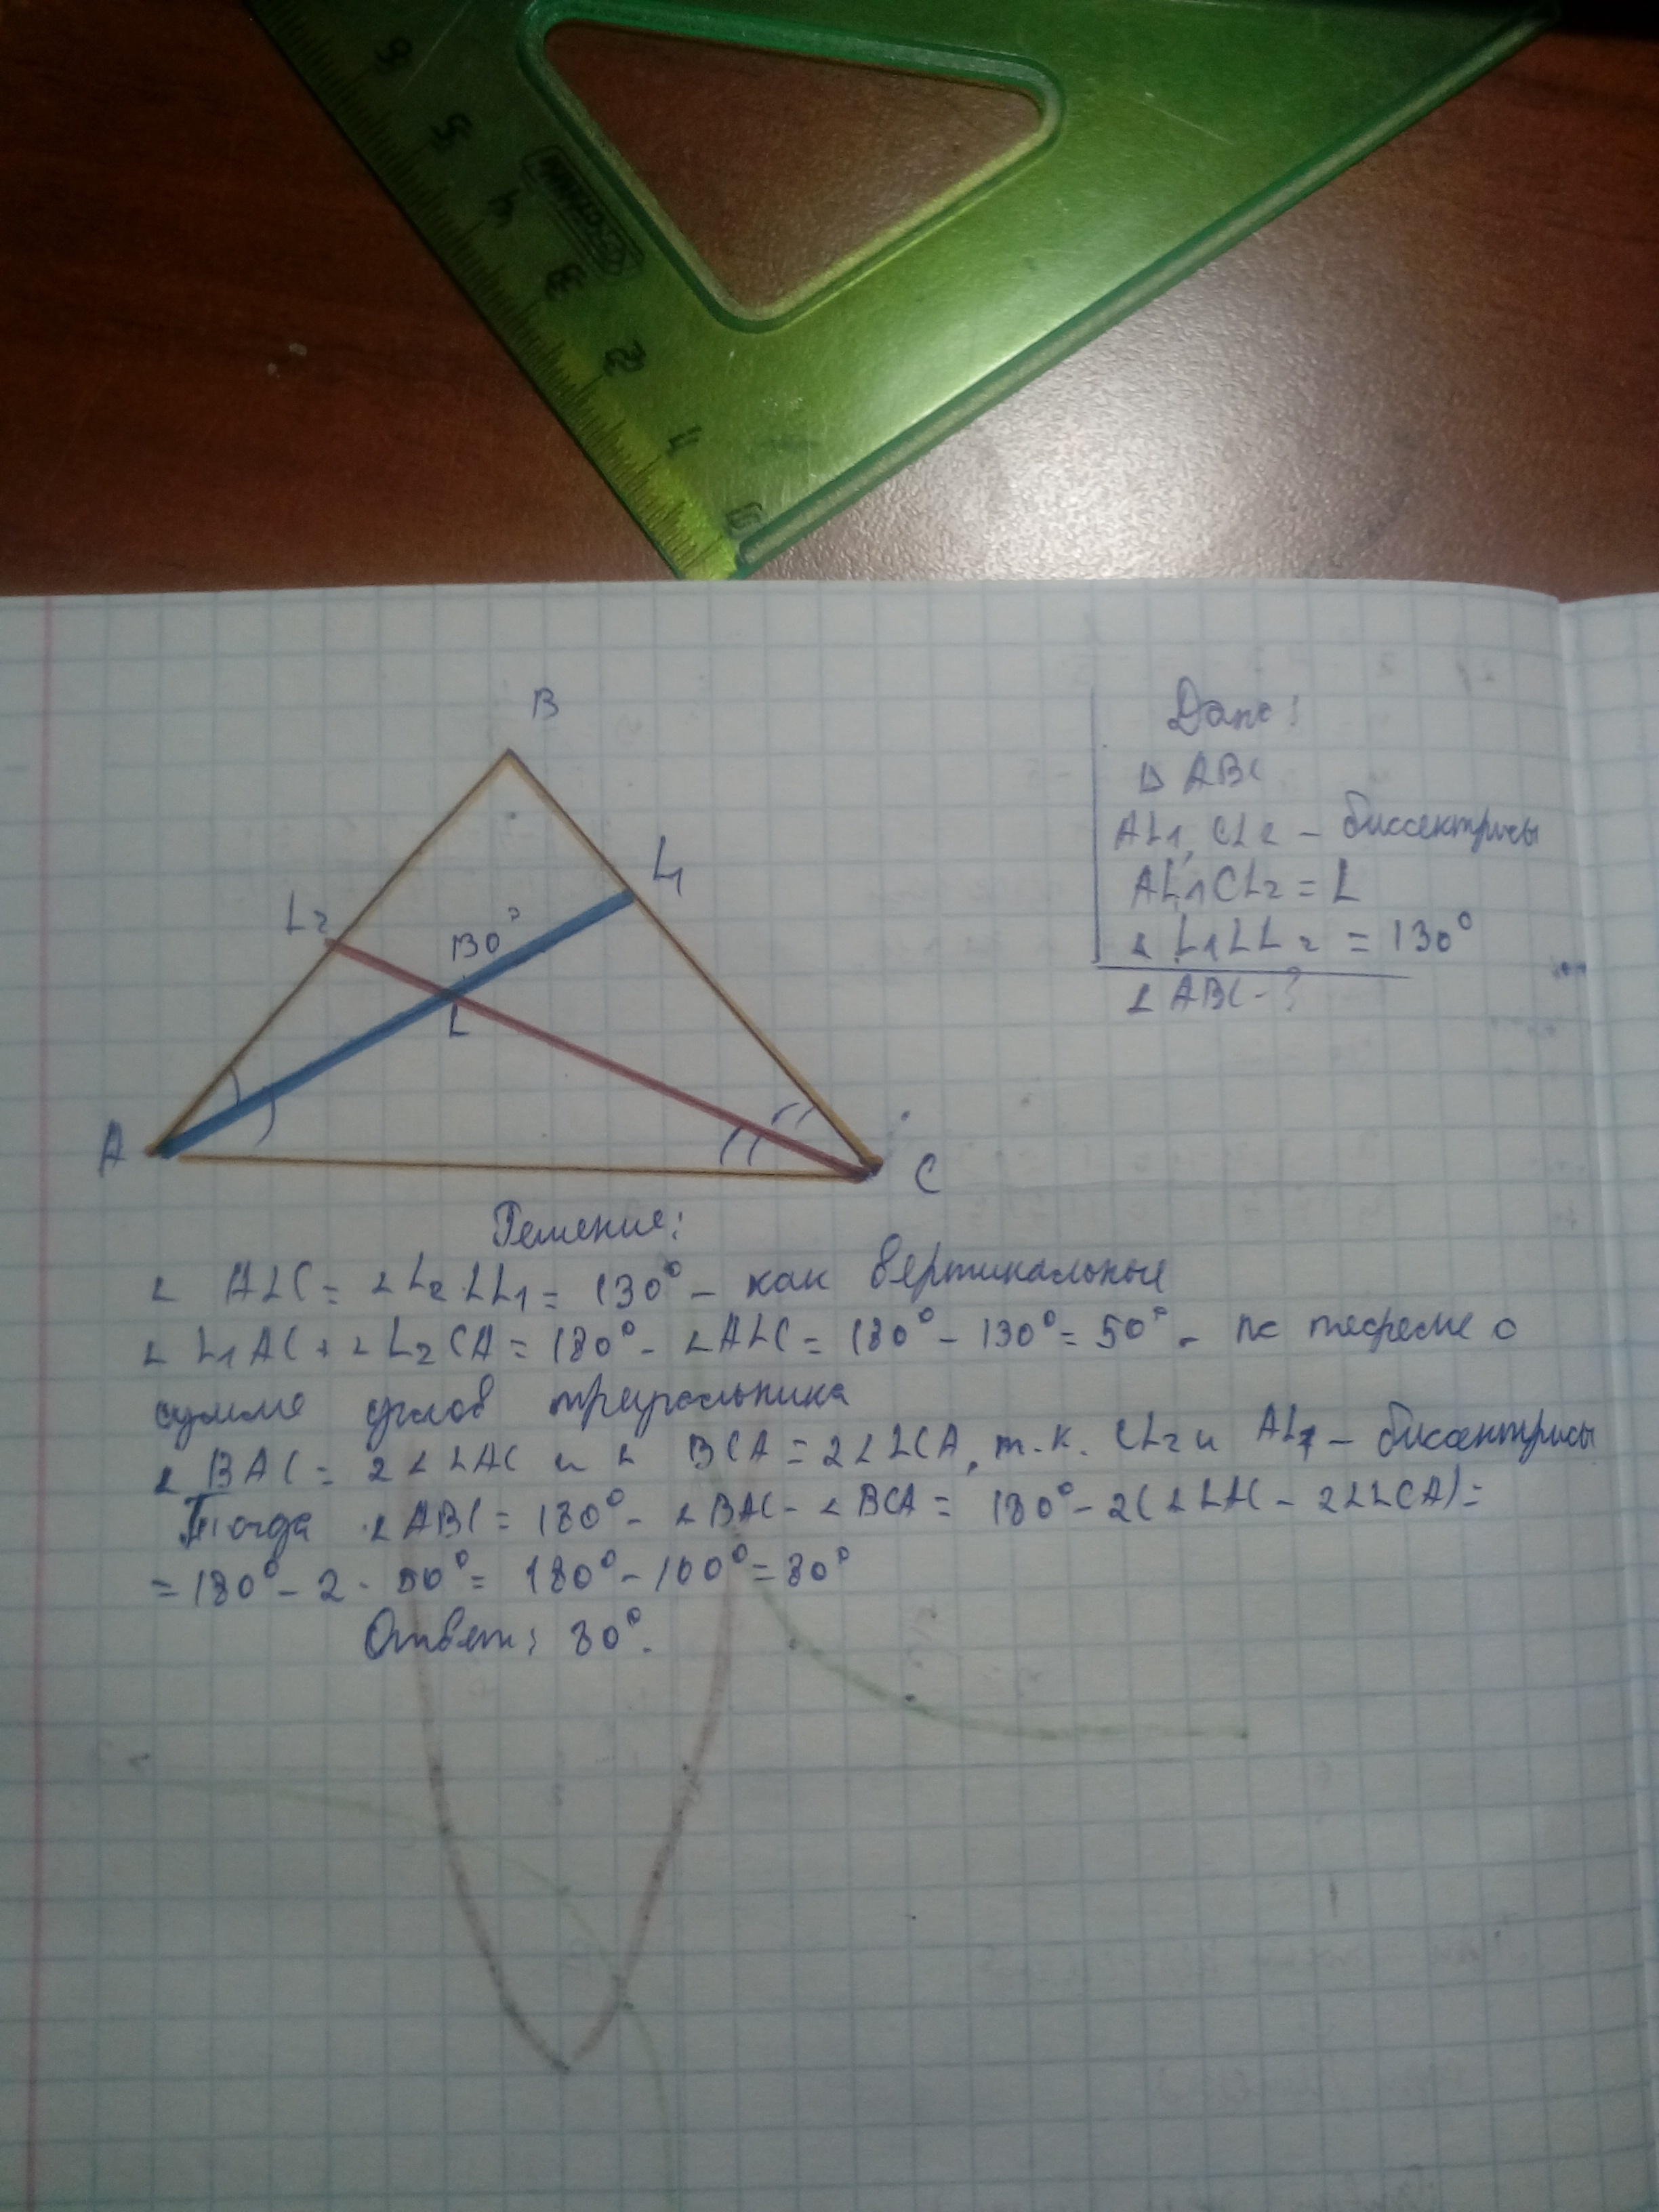 6
5
4
3
2
1
0
B
L1
L2
130°
L
A
C
Дано:
△ ABC
AL1, CL2 – биссектрисы
AL1 CL2 = L
∠ L1LL2 = 130°
∠ ABC - ?
Решение:
∠ ALC = ∠L2LL1 = 130° – как вертикальные
∠ L1AC + ∠L2CA = 180° - ∠ALC = 180° - 130° = 50° - по теореме о
сумме углов треугольника
∠ BAC = 2∠LAC и ∠ BCA = 2∠LCA, т.к. CL2 и AL1 – биссектрисы
Тогда ∠ABC = 180° - ∠BAC - ∠BCA = 180° - 2(∠LAC - 2∠LCA) =
= 180° - 2 · 50° = 180° - 100° = 80°
Ответ: 80°.